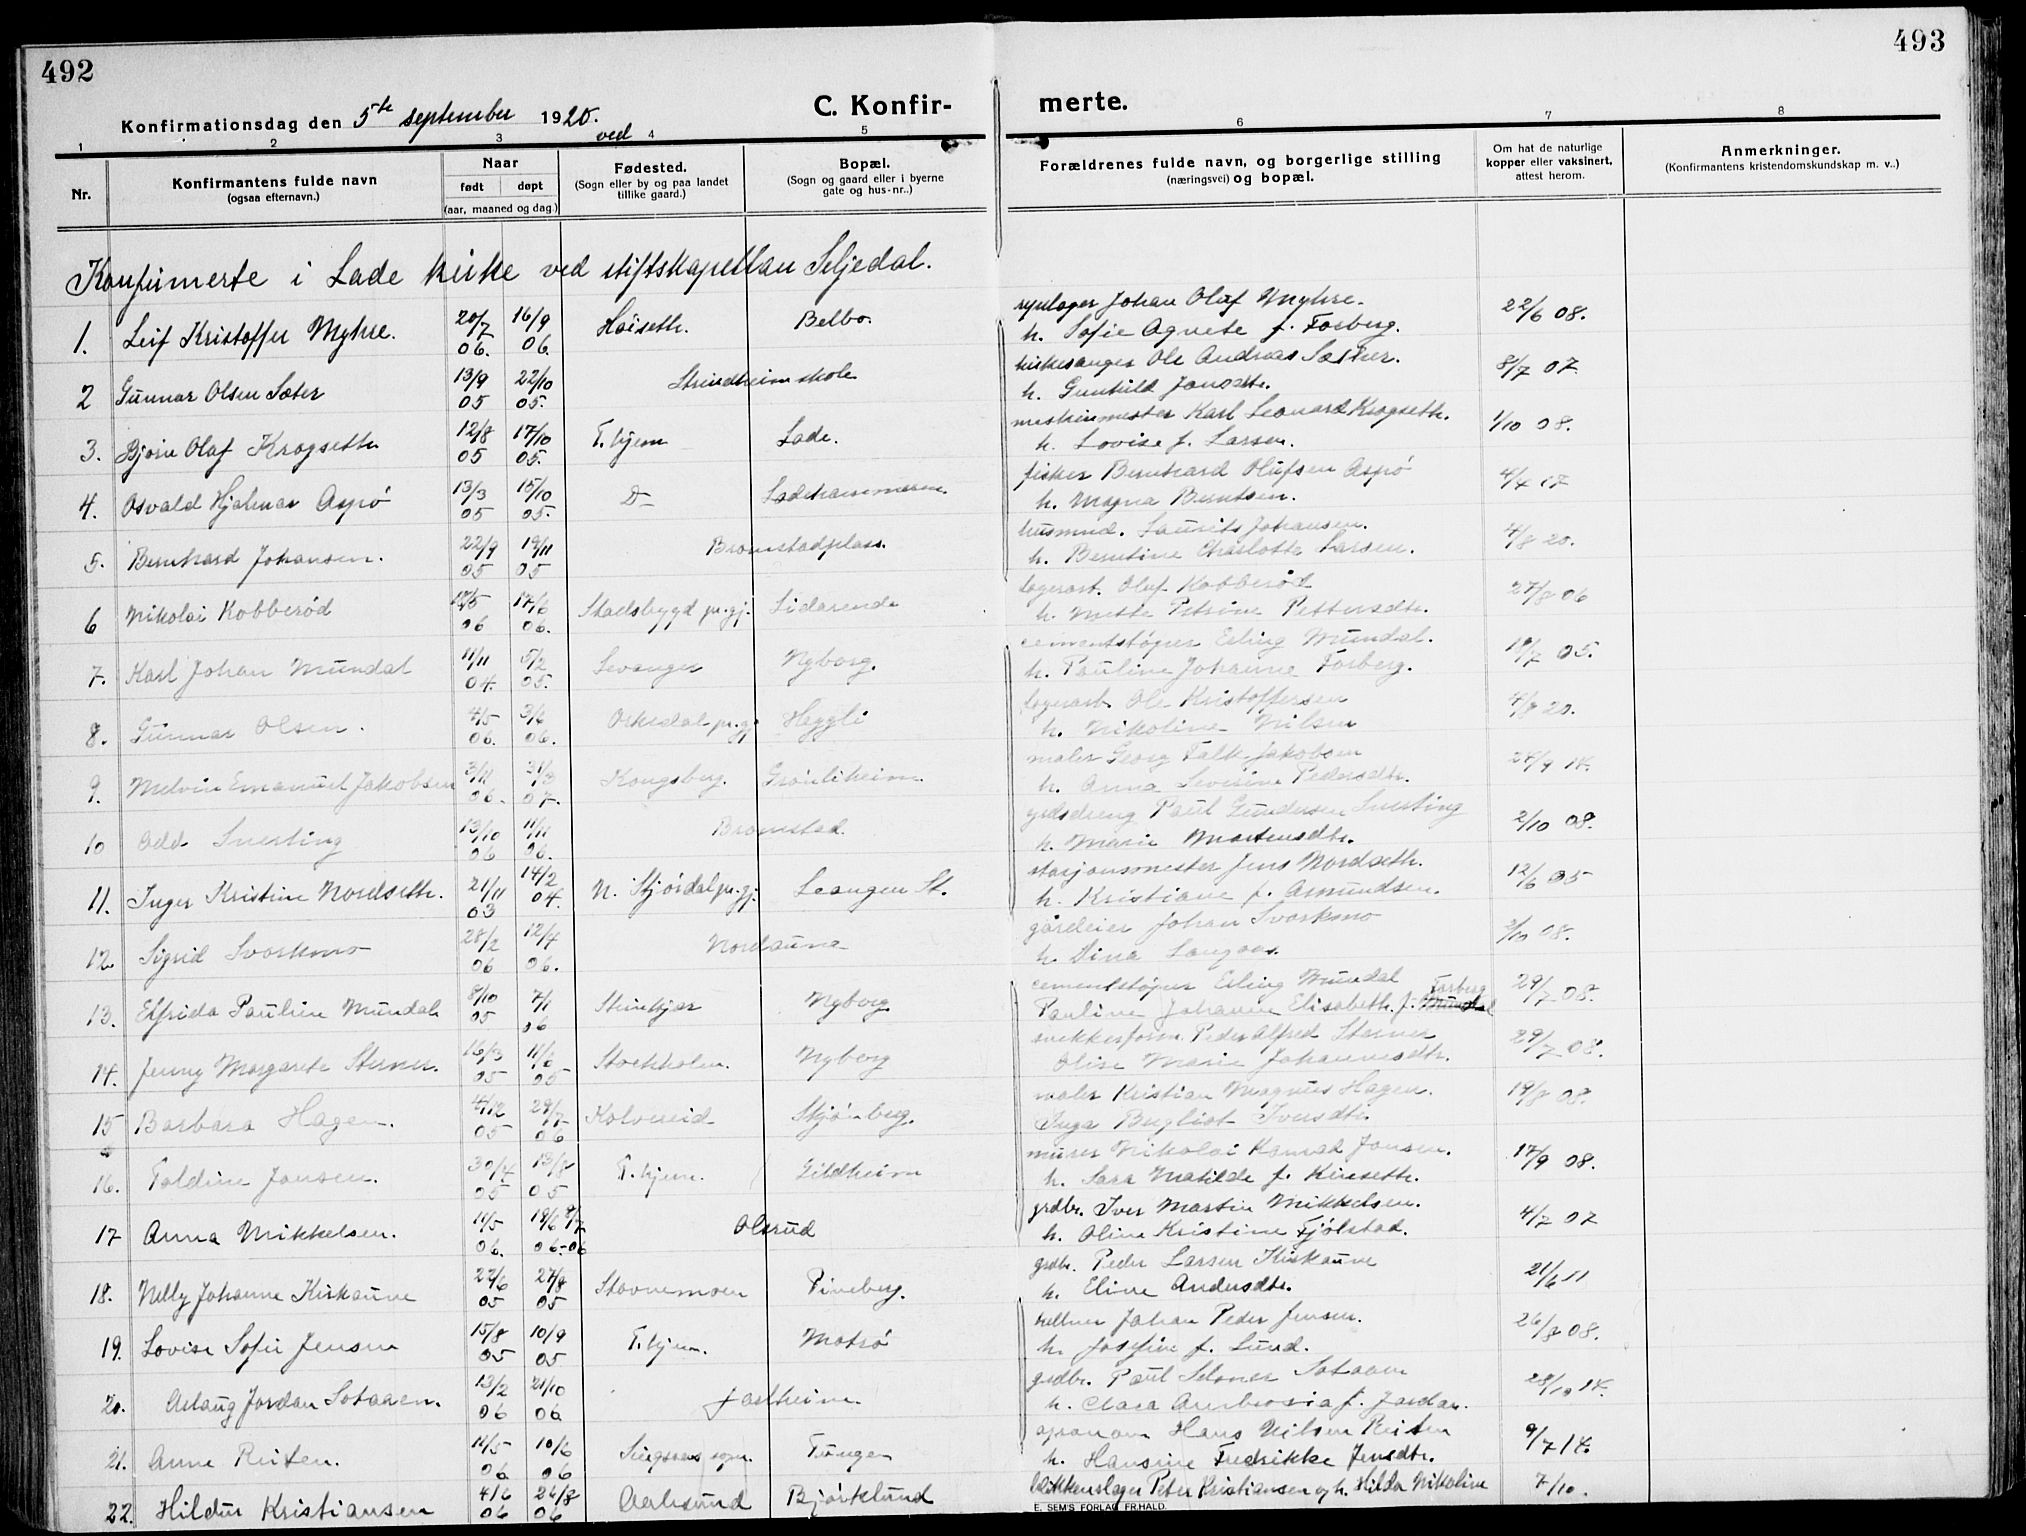 492
493
Konfirmationsdag den 5te september 1920.
ved
C. Konfir-
merte.
1 2 3 4 5 6 7 8
Nr.
Konfirmantens fulde navn
(ogsaa efternavn.)
Naar
født døpt
(aar, maaned og dag.)
Fødested.
(Sogn eller by og paa landet
tillike gaard.)
Bopæl.
(Sogn og gaard eller i byerne
gate og hus-nr.)
Forældrenes fulde navn, og borgerlige stilling
(næringsvei) og bopæl.
Om hat de naturlige
kopper eller vaksinert,
attest herom.
Anmerkninger.
(Konfirmantens kristendomskundskap m. v..)
Konfirmerte i Lade kirke ved stiftskapellan Seljedal.
1. Leif Kristoffer Myhre. 20/7 06. 16/9 06. Høiseth. Belbo. Johan Oluf Myhre.
h. Sofie Agnete f. Forberg. 22/6 08.
2 Gunnar Olsen Sæter 13/9 05 22/10 05. Strindheim skole kirkesanger Ole Andreas Sæther.
h. Gunhild Jonsdtr. 8/7 07.
3. Bjørn Olaf Krogseth 12/8 05 17/10 05. T.hjem Lade. maskinmester Karl Leonard Krogseth.
h. Lovise f. Larsen. 1/10 08.
4. Osvald Hjalmar Aspø 13/3 05 15/10 05. D- Ladehammeren. fisker Bernhard Olufsen Aspø
h. Magna Berntsen. 4/4 17
5. Bernhard Johansen. 22/9 05 19/11 05 Bromstadplass. husmnd. Laurits Johansen.
h. Berntine Charlotte Larsen. 4/8 20.
6 Nikolai Kobberød 06 17/6 06. Stadsbygd pr.gj. Lidarende lagerarb. Oluf Kobberød
h. Mette Petrine Pettersdtr. 27/8 06
7. Karl Johan Mundal 11/11 04. 5/2 05. Levanger Nyborg. cementstøper Erling Mundal.
h. Pauline Johanne Forberg. 19/7 05.
8. Gunnar Olsen. 4/5 06. 3/6 06. Orkedal pr.gj. Heggli lagerarb. Ole Kristoffersen
h. Nikoline Nilsen 4/8 20.
9. Melvin Emanuel Jakobsen 3/11 06. 31/3 07. Kongsberg. Grønliheim. maler Georg Falk Jakobsen
h. Anna Severine Pedersdtr. 24/9 14.
10 Odd Snerting 13/10 06 11/11 06. Bromstad. grdsdreng Paul Gundersen Snerting
h. Marie Mortensdtr. 2/10 08.
11. Inger Kristine Nordseth. 21/11 03 14/2 04. N. Stjørdal pr.gj. Leangen St. stasjonsmester Jens Nordseth.
h. Kristiane f. Asmundsen. 12/6 05
12. Sigrid Svorkmo 28/2 06 12/4 06. Nordauna gårdeier Johan Svorkmo
h. Dina Langaas. 2/10 08.
13. Elfrida Pauline Mundal 8/10 05 7/1 06 Steinkjær Nyborg cementstøper Erling Mundal
Pauline Johanne Elisabeth f. Mundal Forberg 29/7 08.
14. Jenny Margarete Sterner. 16/3 05 11/6 05 Stockholm. Nyborg snekkerform. Peder Alfred Sterner
Olise Marie Johannesdtr. 29/7 08.
15 Barbara Hagen. 4/12 05 29/7 06 Kolvereid Stjønberg. maler Kristian Magnus Hagen.
Inga Bergliot Iversdtr. 19/8 08.
16. Toldine Jonsen. 30/4 05 13/8 05 T.hjem. Gildheim murer Nikolai Konrad Jonsen.
h. Sara Matilde f. Kinseth. 17/9 08.
17 Anna Mikkelsen. 11/5 06. 19/6 8/7 06-06 Olsrud grdbr. Iver Martin Mikkelsen.
h. Oline Kristine Fjølstad. 4/7 07
18. Nelly Johanne Kirkaune 22/6 05 27/8 05 Stavnemoen Pineberg. grdbr. Peder Larsen Kirkaune
h. Eline Andersdtr. 21/6 11
19. Lovise Sofie Jensen 15/8 05 10/9 05 T.hjem. Motrø kellner Johan Peder Jensen.
h. Josefine f. Lund. 26/8 08.
20. Aslaug Jordan Sotaaen. 13/2 06 21/10 06 grdbr. Paul Sotaaen
h. Clara Ambrosia f. Jordan. 28/10 14.
21. Anne Reiten. 11/5 06 10/6 06 Singsaas sogn. Tungen Hans Nilsen Reiten
h. Hansine Fredrikke Jensdtr. 9/7 14.
22. Hildur Kristiansen 4/6 06 26/8 06 Aalesund Bjørklund blikkenslager Peter Kristiansen og h. Hilda Nikoline 7/10.
E. SEM'S FORLAG FR.HALD.